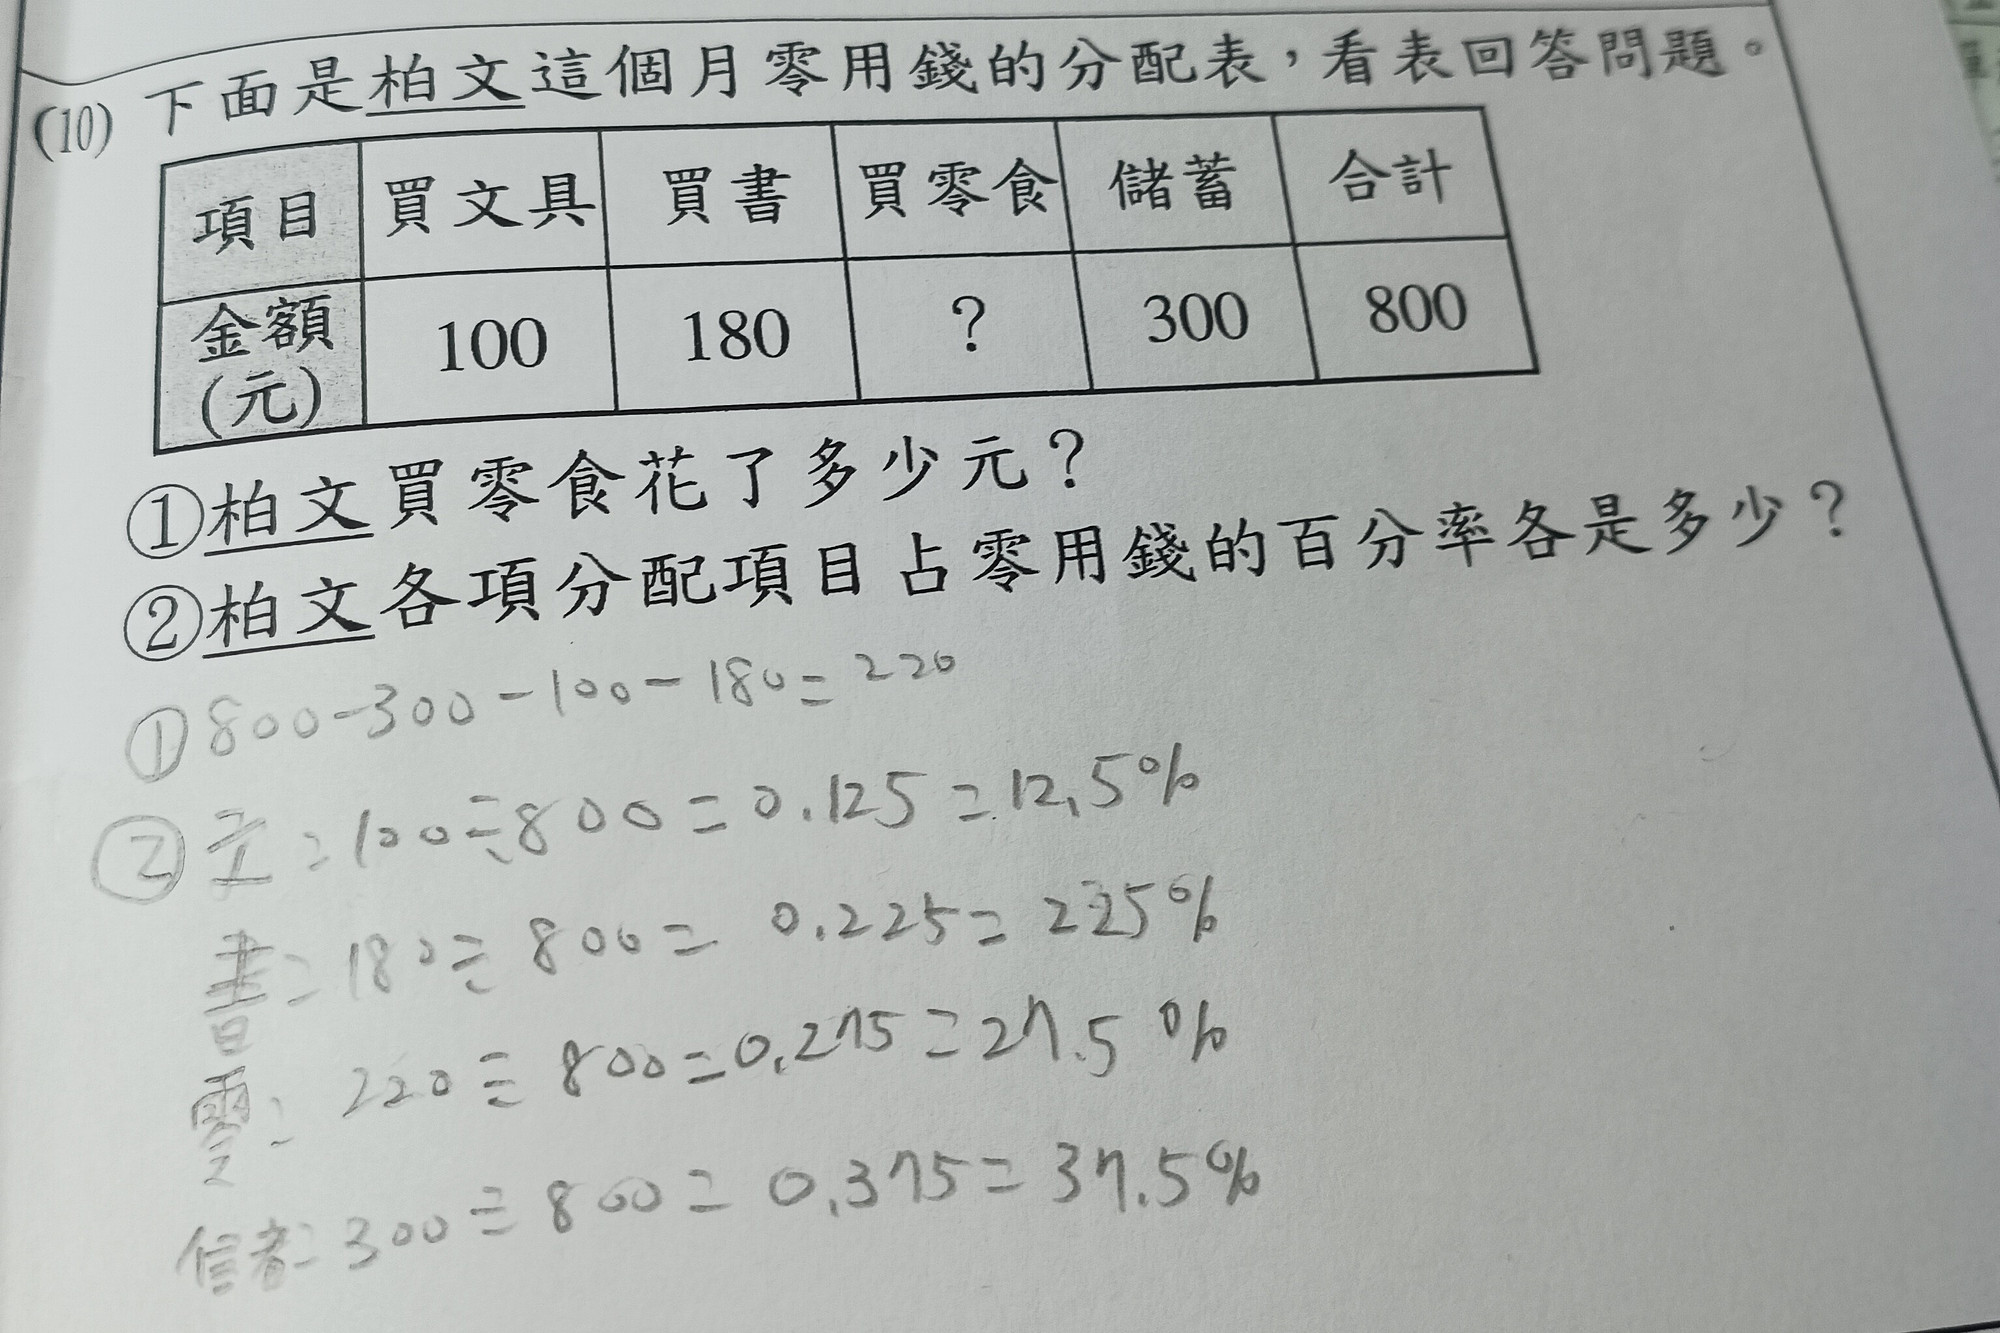 (10) 下面是柏文這個月零用錢的分配表，看表回答問題。
項目 買文具 買書 買零食 儲蓄 合計
金額(元) 100 180 ? 300 800
①柏文買零食花了多少元？
②柏文各項分配項目占零用錢的百分率各是多少？
①800-300-100-180=220
② 文:100÷800=0.125=12.5%
書:180÷800=0.225=225%
零:220÷800=0.275=27.5%
:300÷800=0.375=37.5%